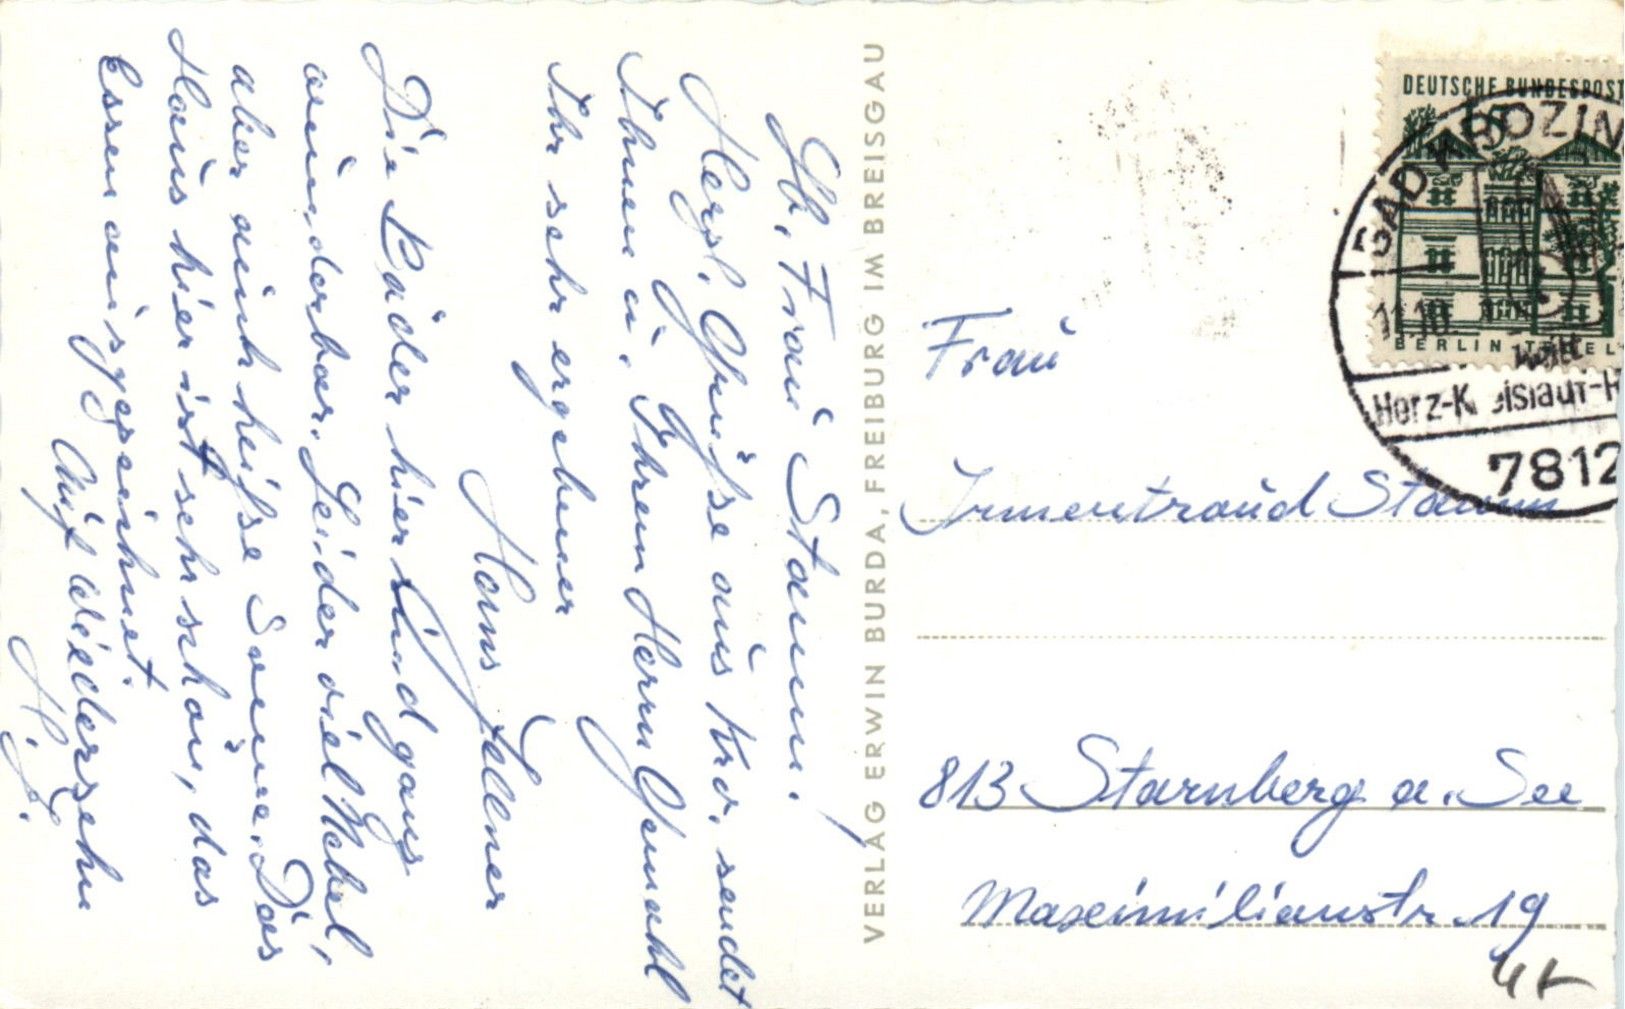 Lb. Frau Stamm.
Herzl. Grüße aus Kro. sendet
Ihnen u. Ihrem Herrn Gemahl
Ihr sehr ergebener
Hans Zellner
Die Bäder hier sind ganz
wunderbar. Leider viel Nebel,
aber auch heiße Sonne. Das
Haus hier ist sehr schön, das
Essen ausgezeichnet.
Auf Wiedersehn
H. Z.
VERLAG ERWIN BURDA, FREIBURG IM BREISGAU
DEUTSCHE BUNDESPOST
BERLIN TEGEL
BAD KROZIN
11.10
Herz-Kreislauf-
7812
Frau
Irmentraud Stamm
813 Starnberg a. See
Maximilianstr. 19